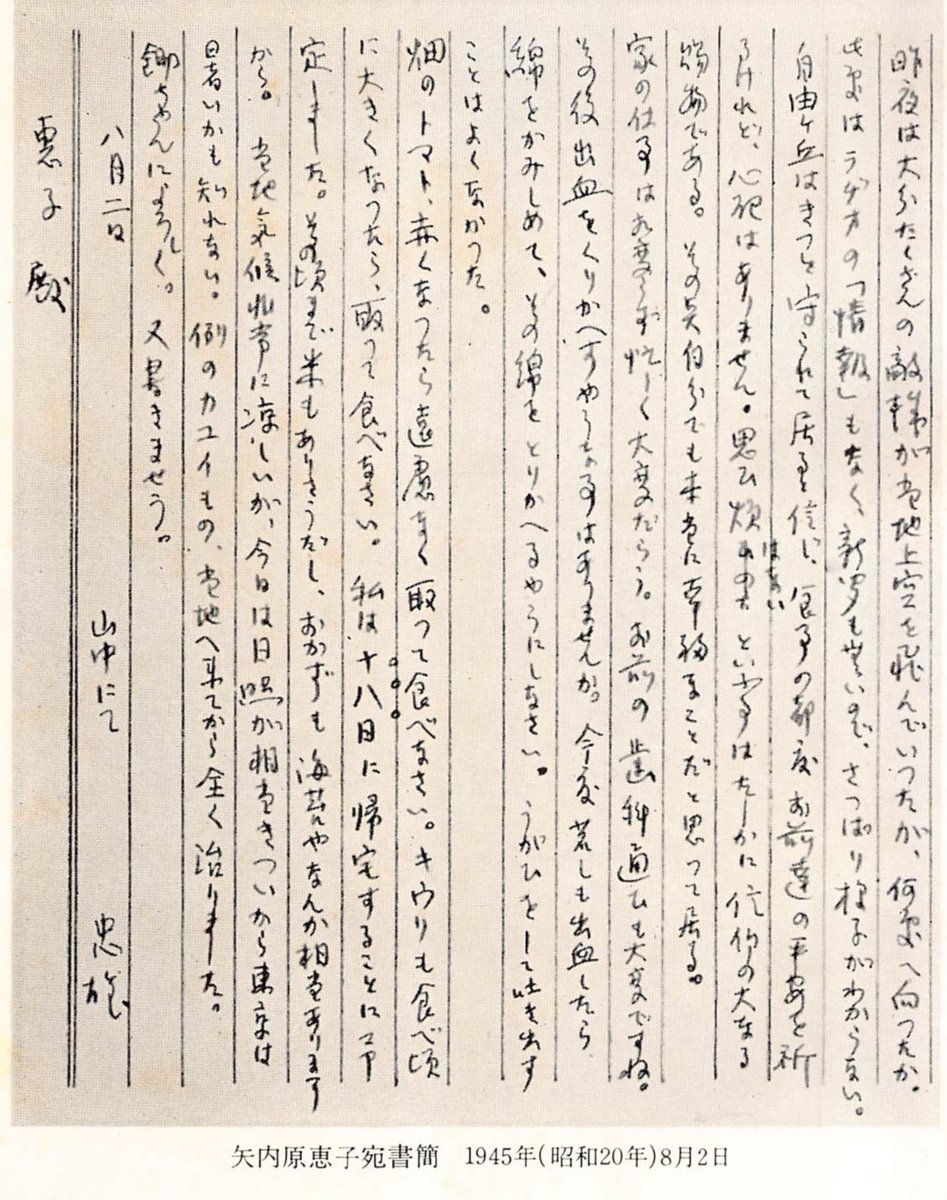 昨夜は大分たくさんの敵機が当地上空を飛んでいつたが、何処へ向つたか。
此処はラヂオの「情報」もなく、新聞も無いので、さつぱり様子がわからない。
自由ケ丘はきつと守られて居ると信じ、食事の都度お前達の平安を祈
るけれど、心配はありません。思ひ煩ひはないといふ事はたしかに信仰の大なる
賜物である。その点自分でも本当に幸福なことだと思つて居る。
家の仕事は相変らず忙しく大変だらう。お前の歯科通ひも大変ですね。
その後出血をくりかへすやうな事はありませんか。今度若しも出血したら
綿をかみしめて、その綿をとりかへるやうにしなさい。うがひをして吐き出す
ことはよくなかつた。
畑のトマト、赤くなつたら遠慮なく取つて食べなさい。キウリも食べ頃
に大きくなつたら、取つて食べなさい。私は十八日に帰宅することに予
定しました。その頃まで米もありさうだし、おかずも海苔やなんか相当あります
から。当地気候非常に涼しいが、今日は日照が相当きついから東京は
暑いかも知れない。例のカユイもの、当地へ来てから全く治りました。
ちやんによろしく。又書きませう。
八月二日 山中にて 忠雄
恵子殿
矢内原恵子宛書簡 1945年(昭和20年)8月2日